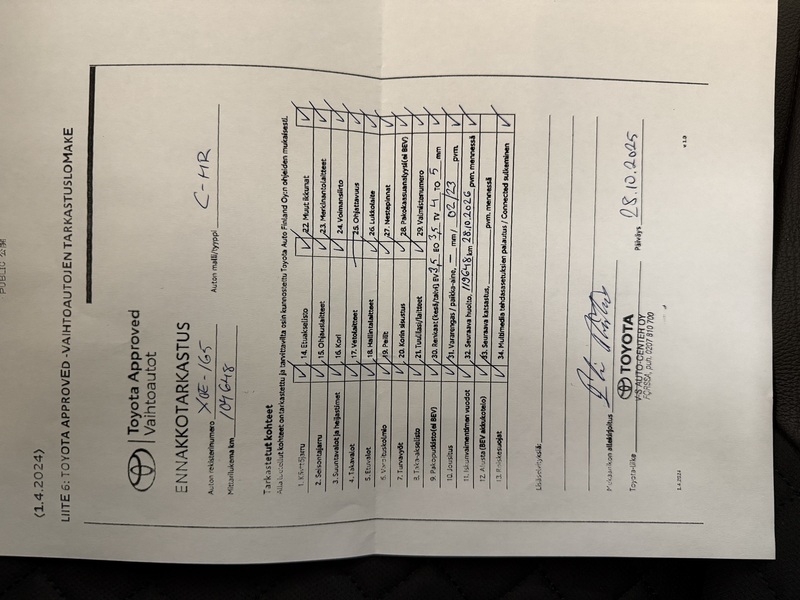 PUBLIC 公開
(1.4.2024)
LIITE 6: TOYOTA APPROVED -VAIHTOAUTOJEN TARKASTUSLOMAKE
Toyota Approved
Vaihtoautot
ENNAKKOTARKASTUS
Auton rekisterinumero XOE-165 Auton malli/tyyppi C-HR
Mittarilukema km 109648
Tarkastetut kohteet
Alla luetellut kohteet on tarkastettu ja tarvittavilta osin kunnostettu Toyota Auto Finland Oy:n ohjeiden mukaisesti.
1. Käyttöjarru ✓ 14. Etuakselisto ✓ 22. Muut ikkunat ✓
2. Seisontajarru ✓ 15. Ohjauslaitteet ✓ 23. Merkinantolaitteet ✓
3. Suuntavalot ja heijastimet ✓ 16. Kori ✓ 24. Voimansiirto ✓
4. Takavalot ✓ 17. Vetolaitteet 25. Ohjattavuus ✓
5. Etuvalot ✓ 18. Hallintalaitteet ✓ 26. Lukkolaite ✓
6. Varoituskolmio ✓ 19. Peilit ✓ 27. Nestepinnat ✓
7. Turvavyöt ✓ 20. Korin sisustus ✓ 28. Pakokaasuanalyysi (ei BEV) ✓
8. Taka-akselisto ✓ 21. Tuulilasi/laitteet ✓ 29. Valmistenumero ✓
9. Pakoputkisto (ei BEV) ✓ 30. Renkaat (kesä/talvi) EV 3,5 EO 3,5 TV 4 TO 5 mm ✓
10. Jousitus ✓ 31. Vararengas / paikka-aine, – mm / 02/23 pvm. ✓
11. Iskunvaimentimen vuodot ✓ 32. Seuraava huolto, 119648 km 28.10.2026 pvm. mennessä ✓
12. Alusta (BEV akkukotelo) ✓ 33. Seuraava katsastus, pvm. mennessä
13. Roiskesuojat ✓ 34. Multimedia tehdasasetuksien palautus / Connected sulkeminen ✓
Lisäselvityksiä:
Mekaanikon allekirjoitus
Toyota-liike TOYOTA Päiväys 28.10.2025
V-S AUTO-CENTER OY
FORSSA, puh. 0207 810 700
1.4.2024 v 1.0